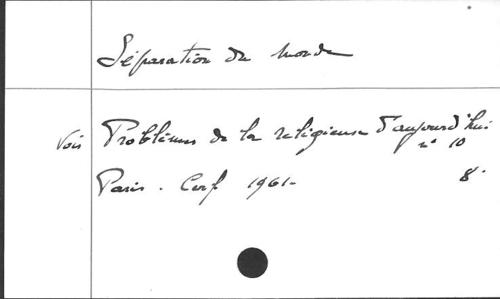 Séparation du monde
Voir Problèmes de la religieuse d'aujourd'hui
n° 10
Paris. Cerf 1961- 8°